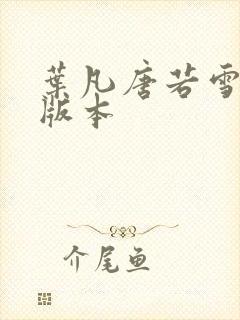 葉凡唐若雪
版本
介尾鱼